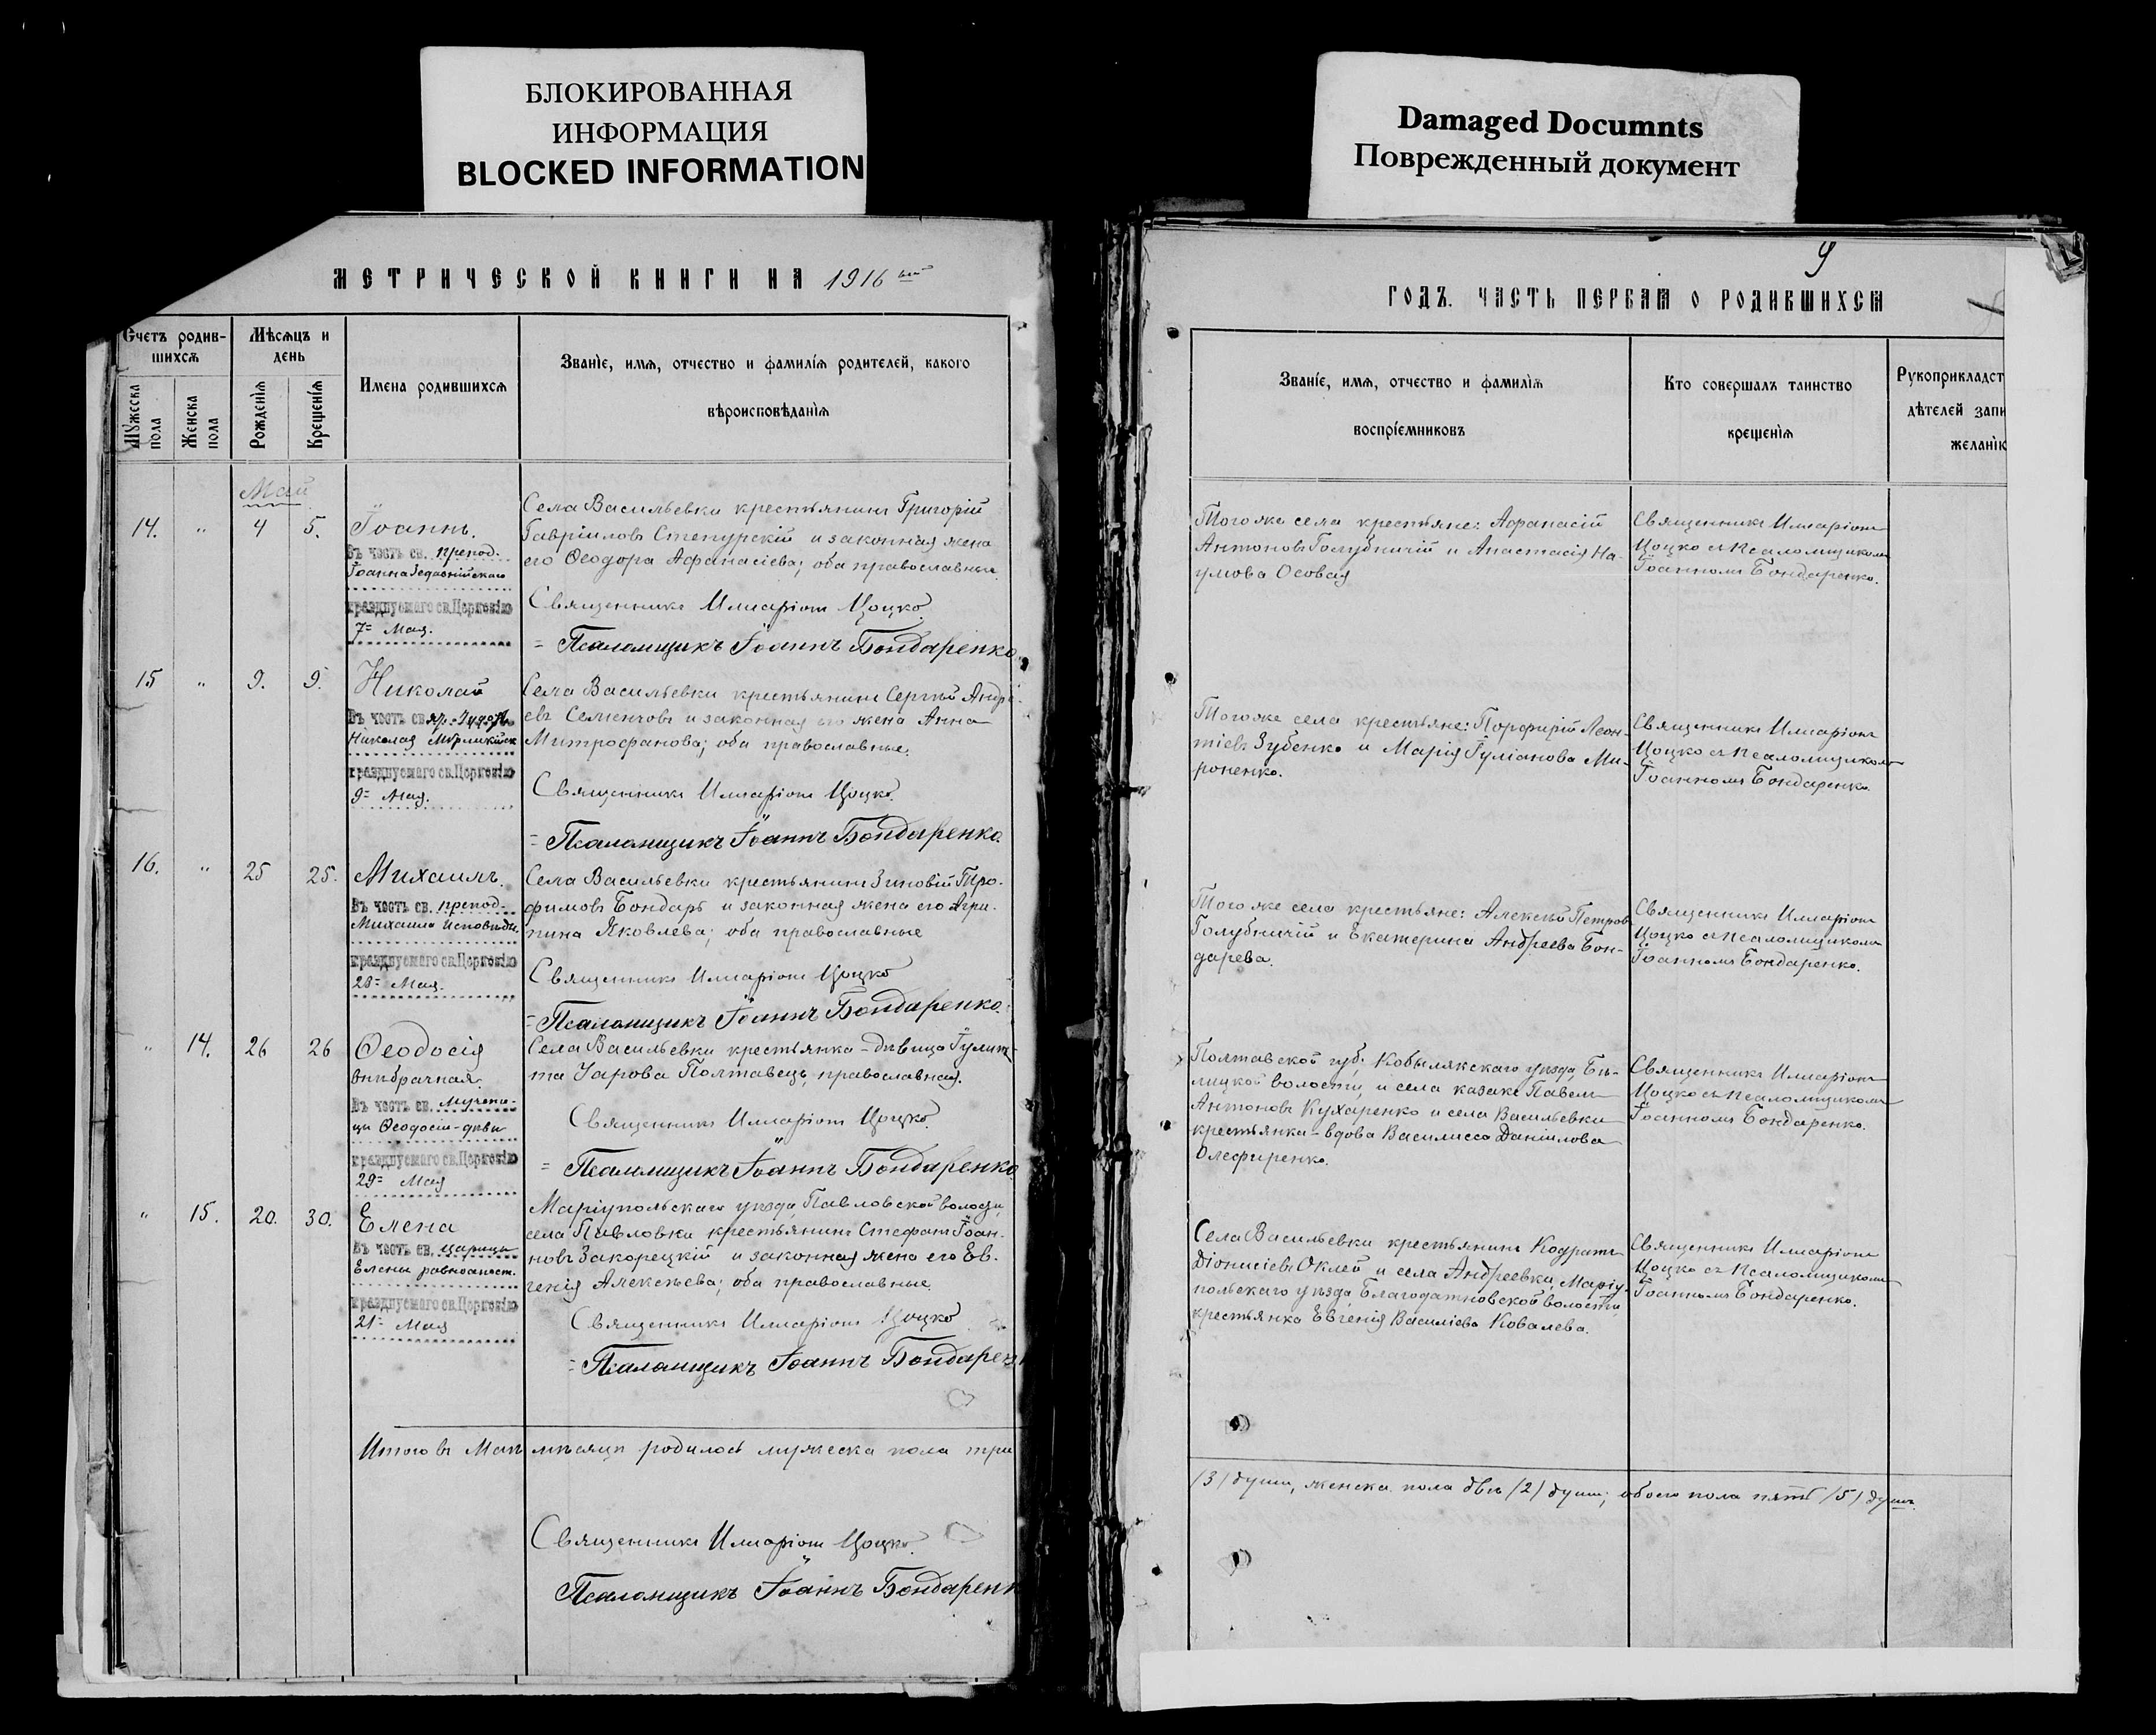 БЛОКИРОВАННАЯ
ИНФОРМАЦИЯ
BLOCKED INFORMATION
Damaged Documnts
Поврежденный документ
МЕТРИЧЕСКОЙ КНИГИ НА 1916
Счетъ родив-
шихся
Мѣсяцъ и
день
Имена родившихся
Званіе, имя, отчество и фамилія родителей, какого
вѣроисповѣданія
Мужеска
пола
Женска
пола
Рожденія
Крещенія
Май
14. " 4 5. Іоаннъ.
Въ честь св. препод.
Іоанна Зедазнійскаго
празднуемаго св. Церковію
7= Мая.
Села Васильевки крестьянинъ Григорій
Гавріиловъ Степурскій и законная жена
его Ѳеодора Афанасіева; оба православные
Священникъ Иларіонъ Цоцко
= Псаломщикъ Іоаннъ Бондаренко
15 " 9. 9. Николай
Въ честь св. Чудотв.
Николая Мѵрликійск
празднуемаго св. Церковію
9= Мая.
Села Васильевки крестьянинъ Сергѣй Андре-
евъ Семенчовъ и законная его жена Анна
Митрофанова; оба православные.
Священникъ Иларіонъ Цоцко.
= Псаломщикъ Іоаннъ Бондаренко.
16. " 25 25. Михаилъ.
Въ честь св. препод.
Михаила Исповѣдн.
празднуемаго св. Церковію
23= Мая.
Села Васильевки крестьянинъ Зиновій Тро-
фимовъ Бондарь и законная жена его Агри-
пина Яковлева; оба православные
Священникъ Иларіонъ Цоцко
= Псаломщикъ Іоаннъ Бондаренко.
" 14. 26 26 Ѳеодосія
внѣбрачная.
Въ честь св. мучени-
цы Ѳеодосіи-дѣвы
празднуемаго св. Церковію
29= Мая
Села Васильевки крестьянка-дѣвица Іулит-
та Уарова Полтавецъ, православная.
Священникъ Иларіонъ Цоцко.
= Псаломщикъ Іоаннъ Бондаренко
" 15. 20. 30. Елена
Въ честь св. царицы
Елены равноапост.
празднуемаго св. Церковію
21= Мая
Маріупольскаго уѣзда, Павловской волости,
села Павловки крестьянинъ Стефанъ Іоан-
новъ Закорецкій и законная жена его Ев-
генія Алексѣева; оба православные.
Священникъ Иларіонъ Цоцко
= Псаломщикъ Іоаннъ Бондарен
Итого въ Маѣ мѣсяцѣ родилось мужеска пола три
Священникъ Иларіонъ Цоцко.
Псаломщикъ Іоаннъ Бондаренк
9
ГОДЪ. ЧАСТЬ ПЕРВАЯ О РОДИВШИХСЯ
Званіе, имя, отчество и фамилія
воспріемниковъ
Кто совершалъ таинство
крещенія
Рукоприкладст
дѣтелей запи
желанію
Того же села крестьяне: Афанасій
Антоновъ Голубничій и Анастасія На-
умова Осовая
Священникъ Иларіонъ
Цоцко съ псаломщикомъ
Іоанномъ Бондаренко.
Того же села крестьяне: Порфирій Леон-
тіевъ Зубенко и Марія Іуліанова Ми-
роненко.
Священникъ Иларіонъ
Цоцко съ псаломщикомъ
Іоанномъ Бондаренко.
Того же села крестьяне: Алексѣй Петровъ
Голубничій и Екатерина Андреева Бон-
дарева.
Священникъ Иларіонъ
Цоцко съ псаломщикомъ
Іоанномъ Бондаренко.
Полтавской губ. Кобылякскаго уѣзда, Бѣ-
лицкой волости, и села казакъ Павелъ
Антоновъ Кухаренко и села Васильевки
крестьянка-вдова Василисса Даніилова
Олефиренко.
Священникъ Иларіонъ
Цоцко съ псаломщикомъ
Іоанномъ Бондаренко.
Села Васильевки крестьянинъ Кодратъ
Діонисіевъ Оклей и села Андреевки, Маріу-
польскаго уѣзда, Благодатновской волости,
крестьянка Евгенія Василіева Ковалева.
Священникъ Иларіонъ
Цоцко съ псаломщикомъ
Іоанномъ Бондаренко.
/3/ души, женска пола двѣ /2/ души; обоего пола пять /5/ душъ.